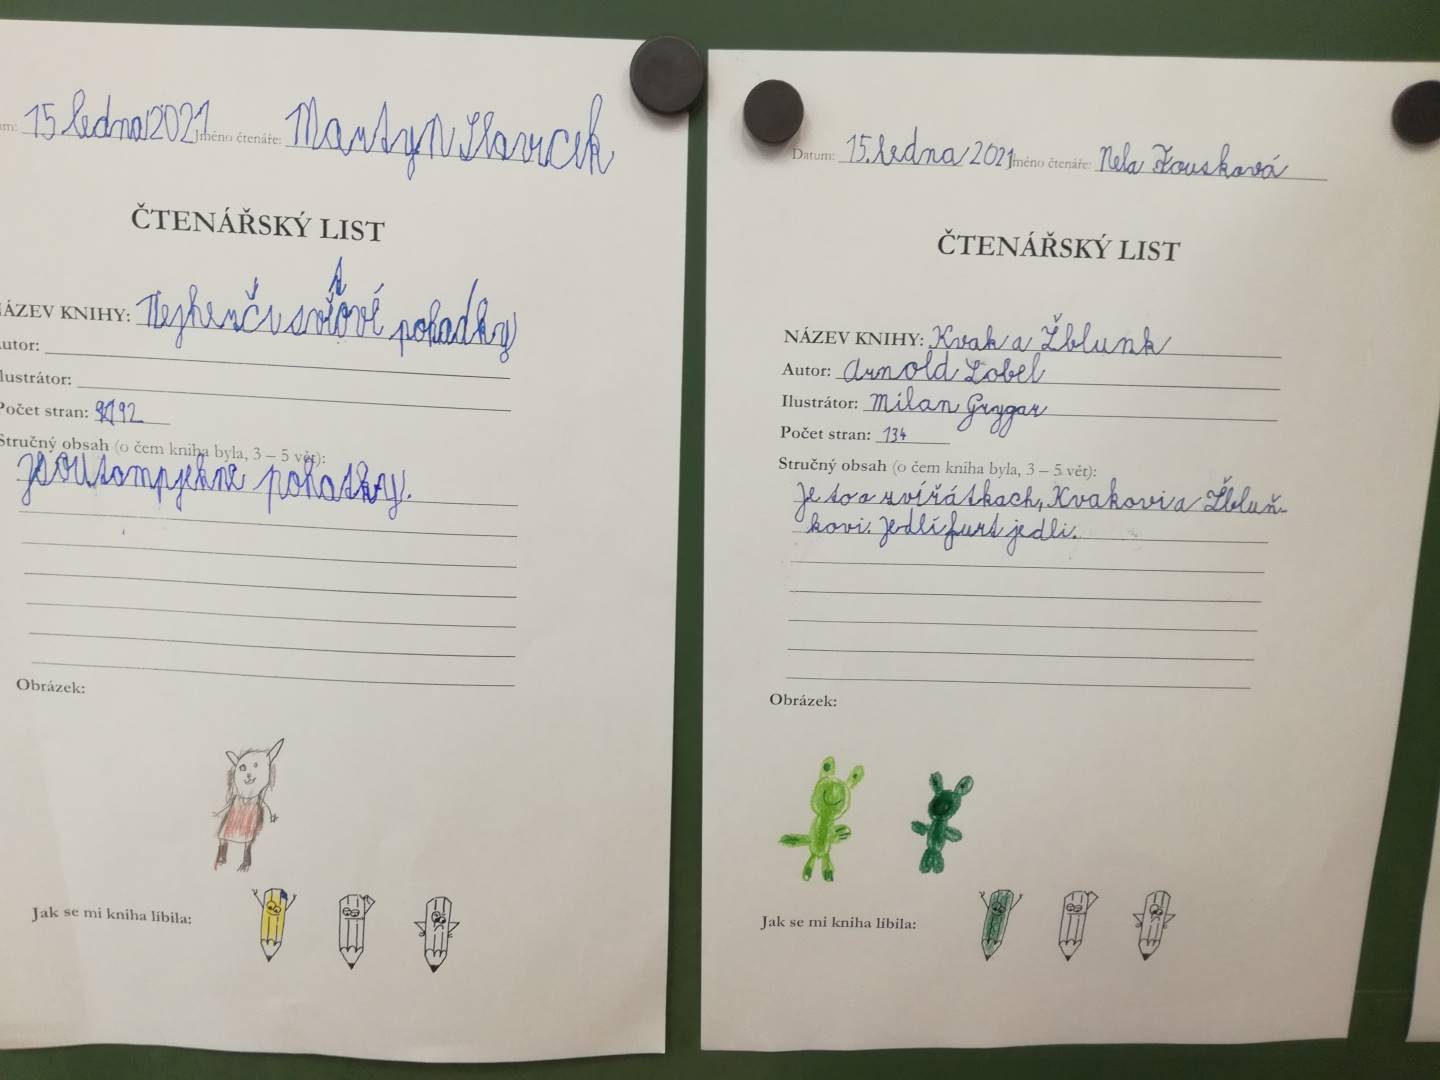 um: 15 ledna 2021 Jméno čtenáře: Martyn Slavicek
ČTENÁŘSKÝ LIST
NÁZEV KNIHY: pohadky
utor:
lustrátor:
Počet stran: 92
Stručný obsah (o čem kniha byla, 3 – 5 vět):
jsou tom pjekne pohatky.
Obrázek:
Jak se mi kniha líbila:
Datum: 15. ledna 2021 Jméno čtenáře: Nela Kousková
ČTENÁŘSKÝ LIST
NÁZEV KNIHY: Kvak a Žblunk
Autor: Arnold Lobel
Ilustrátor: Milan Grygar
Počet stran: 134
Stručný obsah (o čem kniha byla, 3 – 5 vět):
Je to o zvířátkach, Kvakovi a Žbluň-
kovi. Jedli furt jedli.
Obrázek:
Jak se mi kniha líbila: